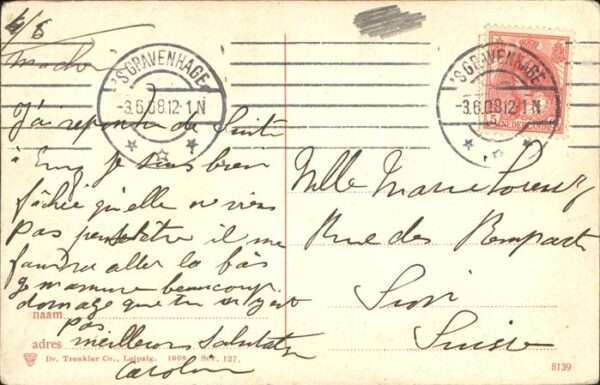 'S GRAVENHAGE
-3.6.08.12-1.N
'S GRAVENHAGE
-3.6.08.12-1.N
J'ai repondu de Suite
à Emy je suis bien
fâchée qu'elle ne viens
pas peut être il me
faudra aller la bás
je m'amuse beaucoup.
domage que tu n'y est
pas
meilleures Salutations
Caroline
Mlle Marie Lorenz
Rue des Remparts
Sion
Suisse
naam
adres
Dr. Trenkler Co., Leipzig. 1908. Ser. 127.
8139